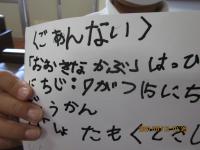 〈ごあんない〉
「おおきなかぶ」はっぴ
にちじ:7がつ15にち
ょうかん
しょ たもくてきし